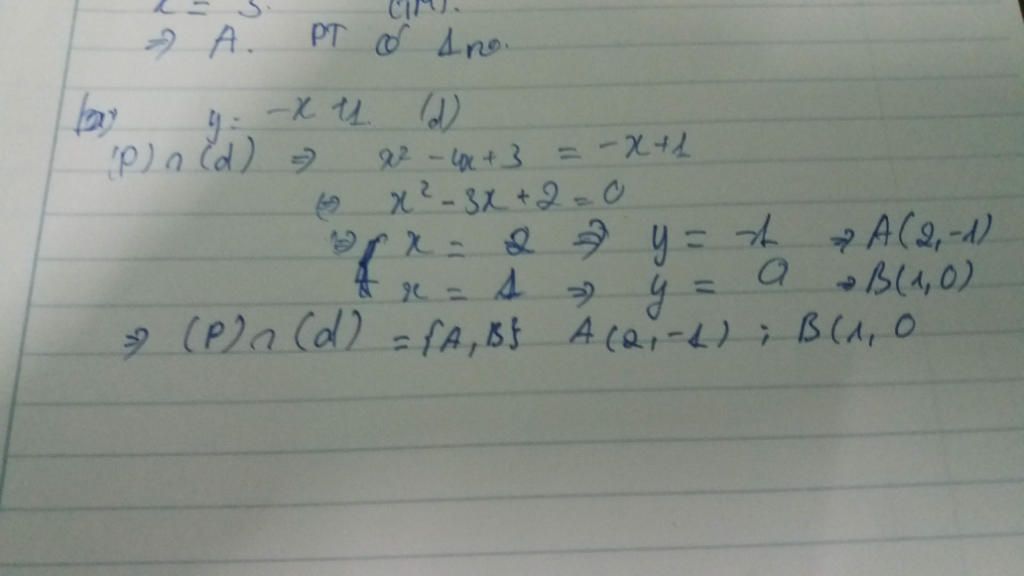 x = 3. (TM).
⇒ A. PT có 1 no.
y = -x + 1 (d)
(P) ∩ (d) ⇒ x² - 4x + 3 = -x + 1
⇔ x² - 3x + 2 = 0
⇔ [ x = 2 ⇒ y = -1 ⇒ A(2,-1)
x = 1 ⇒ y = 0 ⇒ B(1,0)
⇒ (P) ∩ (d) = {A, B} A(2,-1) ; B(1, 0